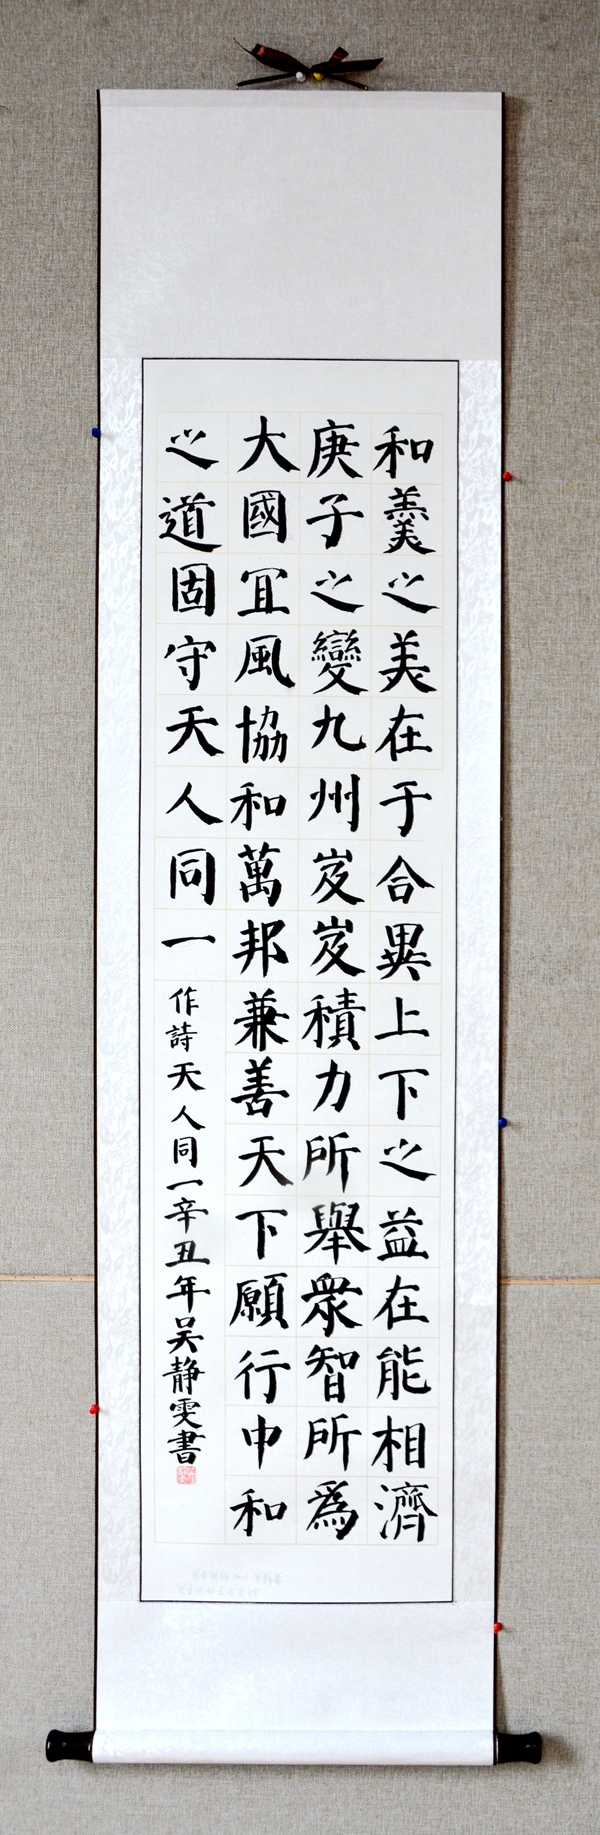 和羹之美在于合異上下之益在能相濟
庚子之變九州岌岌積力所舉衆智所為
大國冝風協和萬邦兼善天下願行中和
之道固守天人同一
作詩天人同一辛丑年吴静雯書